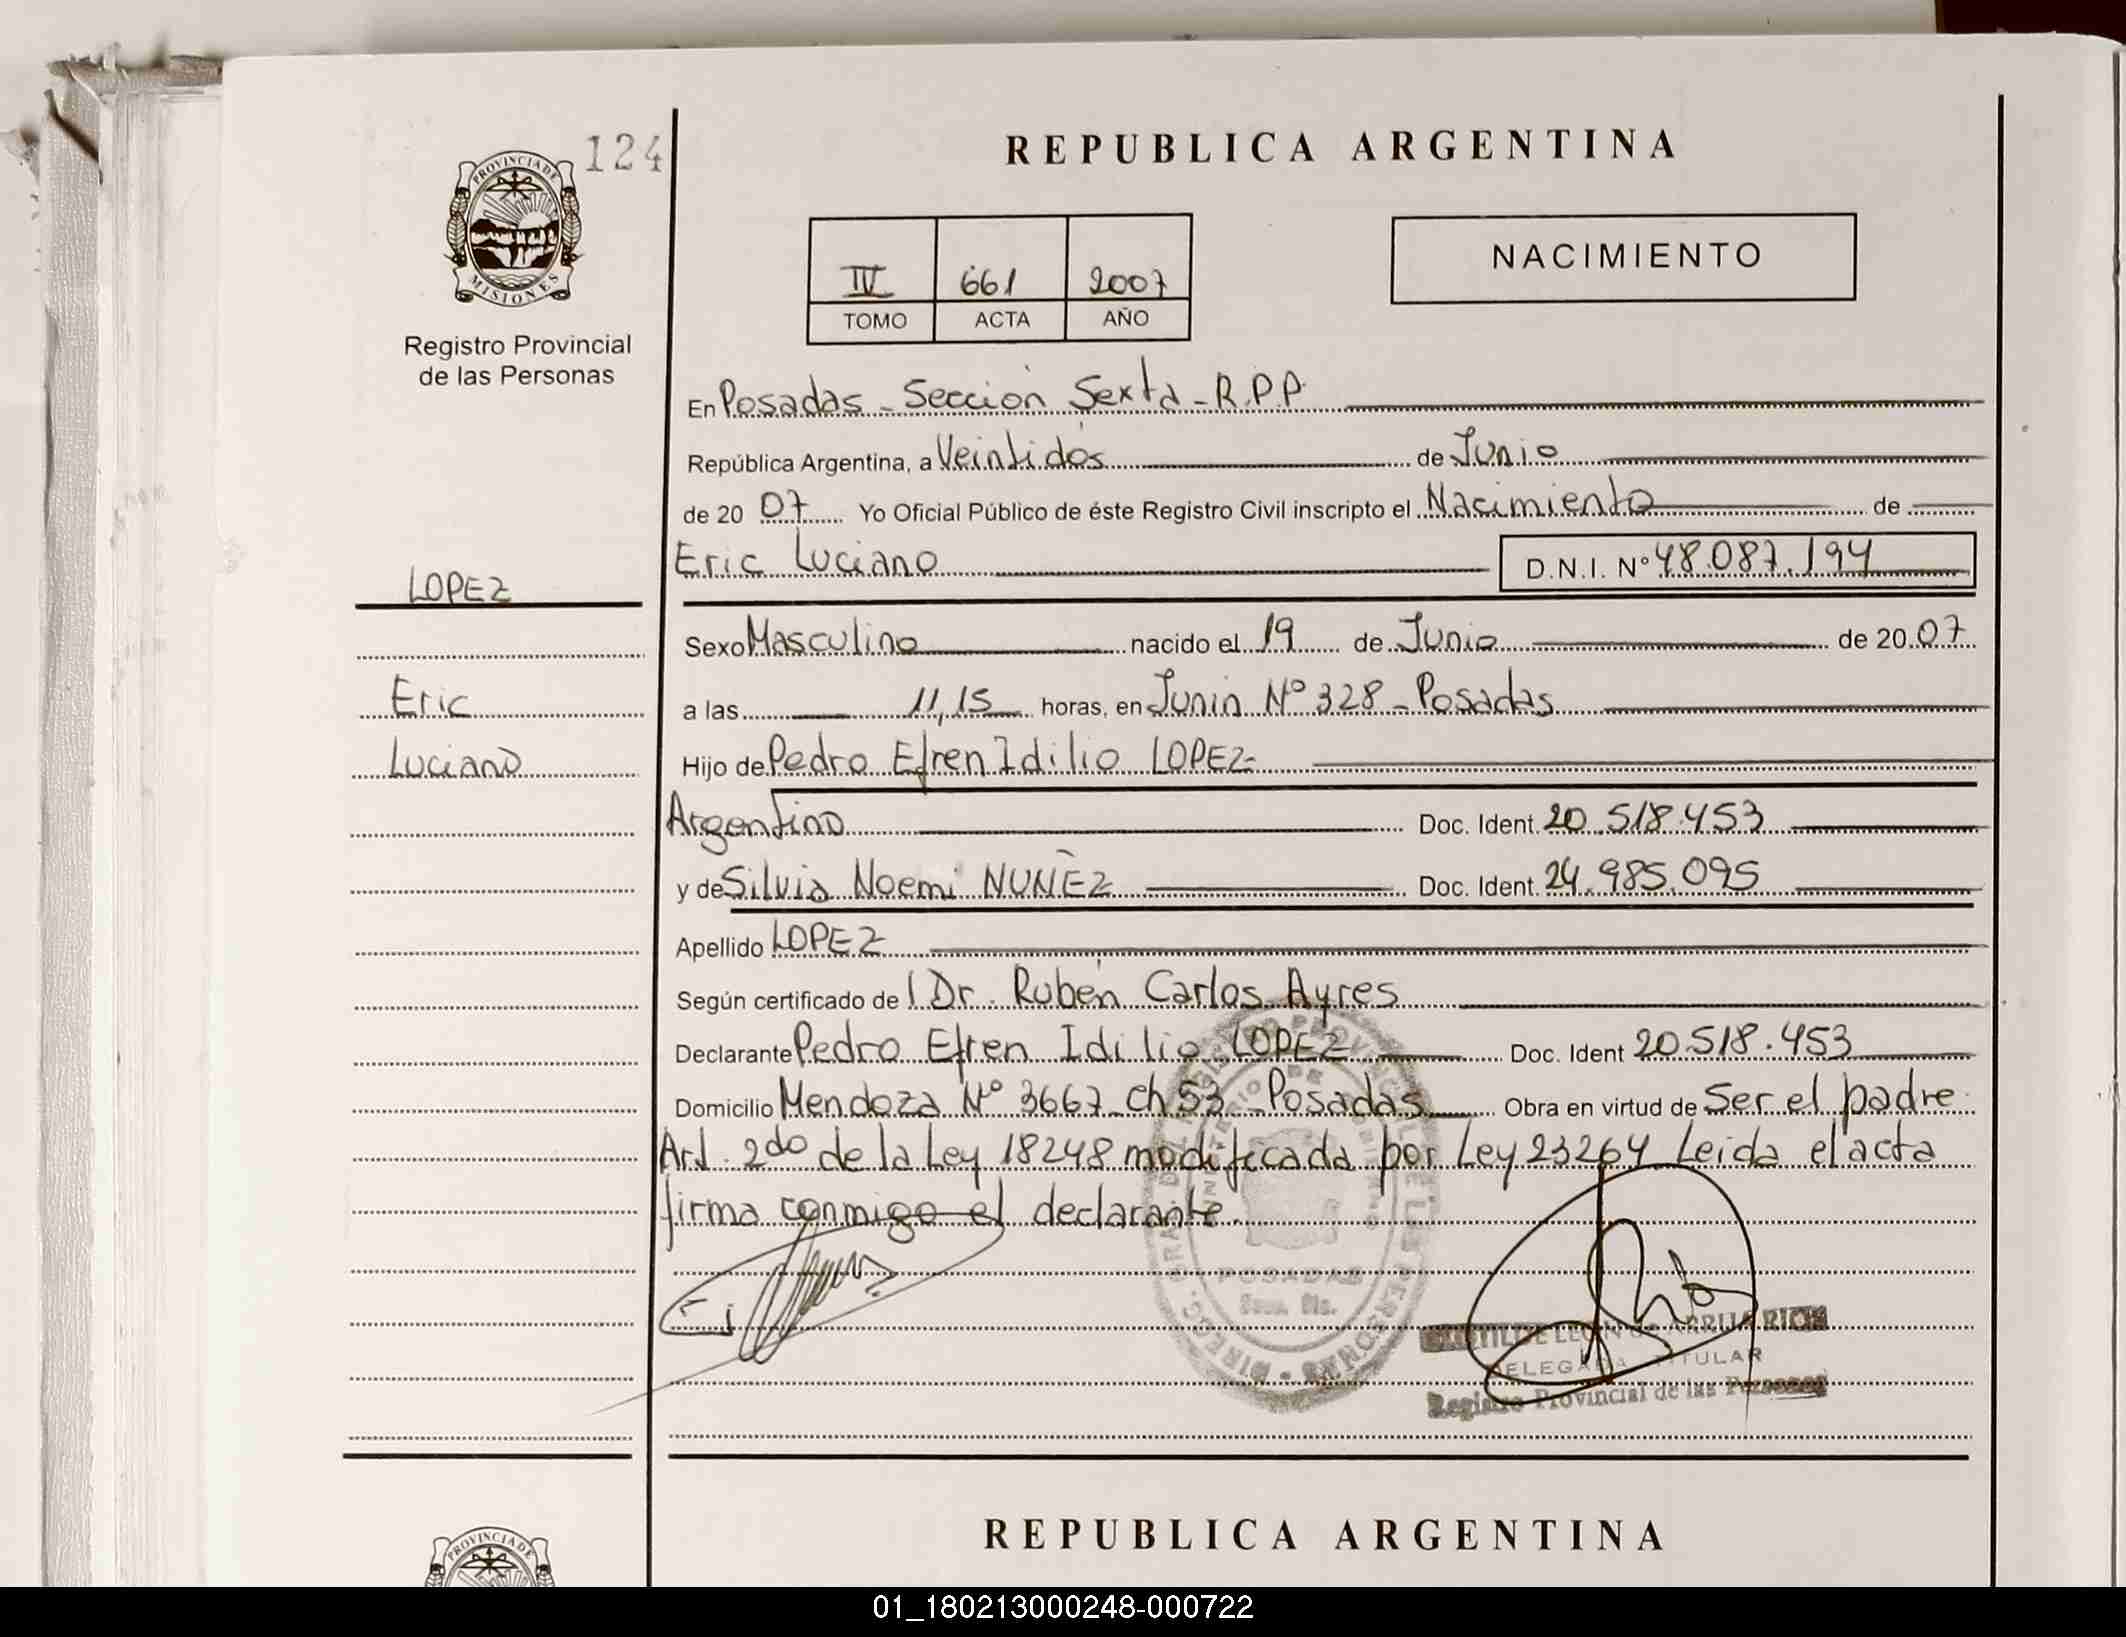 124
PROVINCIA DE
MISIONES
Registro Provincial
de las Personas
REPUBLICA ARGENTINA
IV 661 2007
TOMO ACTA AÑO
NACIMIENTO
En Posadas - Sección Sexta - R.P.P.
República Argentina, a Veintidós de Junio
de 20 07 Yo Oficial Público de éste Registro Civil inscripto el Nacimiento de
Eric Luciano D.N.I. Nº 48.087.194
LOPEZ
Sexo Masculino nacido el 19 de Junio de 20 07
Eric
a las 11,15 horas, en Junin Nº 328 - Posadas
Luciano
Hijo de Pedro Efren Idilio LOPEZ-
Argentino Doc. Ident. 20.518.453
y de Silvia Noemi NUÑEZ Doc. Ident. 24.985.095
Apellido LOPEZ
Según certificado de l Dr. Rubén Carlos Ayres
Declarante Pedro Efren Idilio LOPEZ Doc. Ident 20.518.453
Domicilio Mendoza Nº 3667 Ch 53 - Posadas Obra en virtud de Ser el padre
Art. 2do de la Ley 18248 modificada por Ley 23264 Leida el acta
firma conmigo el declarante.
POSADAS
DELEGADA TITULAR
Registro Provincial de las Personas
REPUBLICA ARGENTINA
PROVINCIA DE
01_180213000248-000722